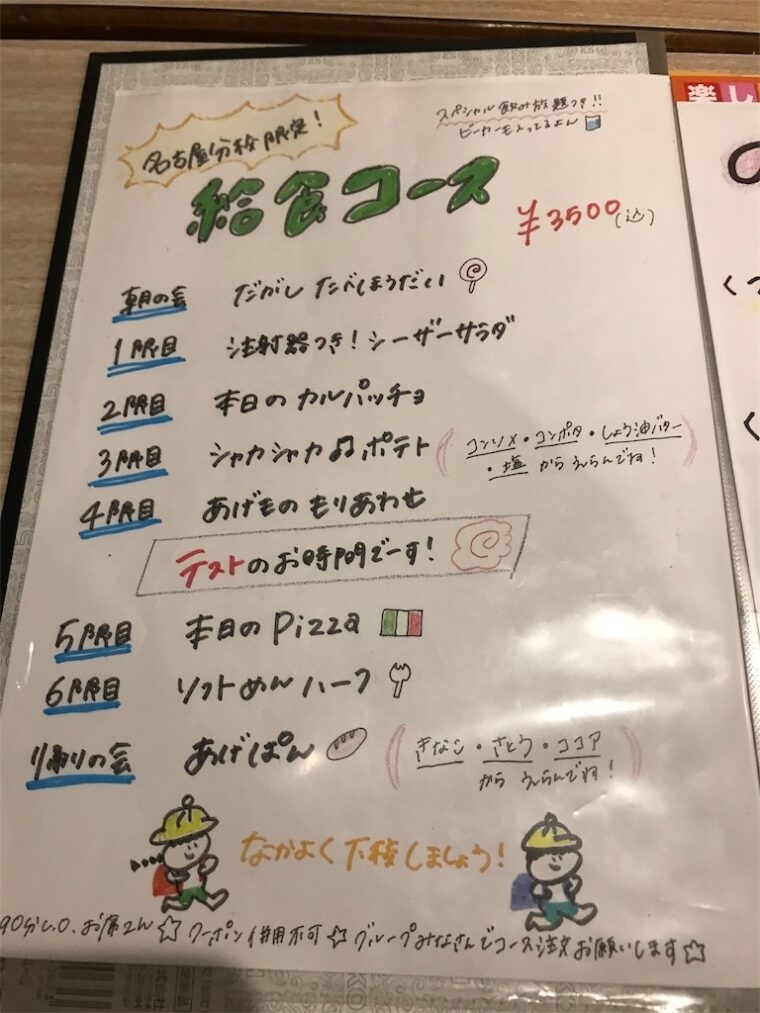 名古屋分校限定!
スペシャル飲み放題つき!!
ビーカーもえってるよん
給食コース
¥3500(込)
朝の会 だがし たべほうだい
1限目 注射器つき!シーザーサラダ
2限目 本日のカルパッチョ
3限目 シャカシャカ♫ポテト (コンソメ・コンポタ・しょう油バター
・塩からえらんでね!)
4限目 あげもの もりあわせ
テストのお時間でーす!
5限目 本日のPizza
6限目 ソフトめんハーフ
帰りの会 あげぱん (きなこ・さとう・ココア
からえらんでね!)
なかよく下校しましょう!
90分L.O. お席2h☆クーポン併用不可☆グループみなさんでコース注文お願いします☆
楽し
の
くつ
く